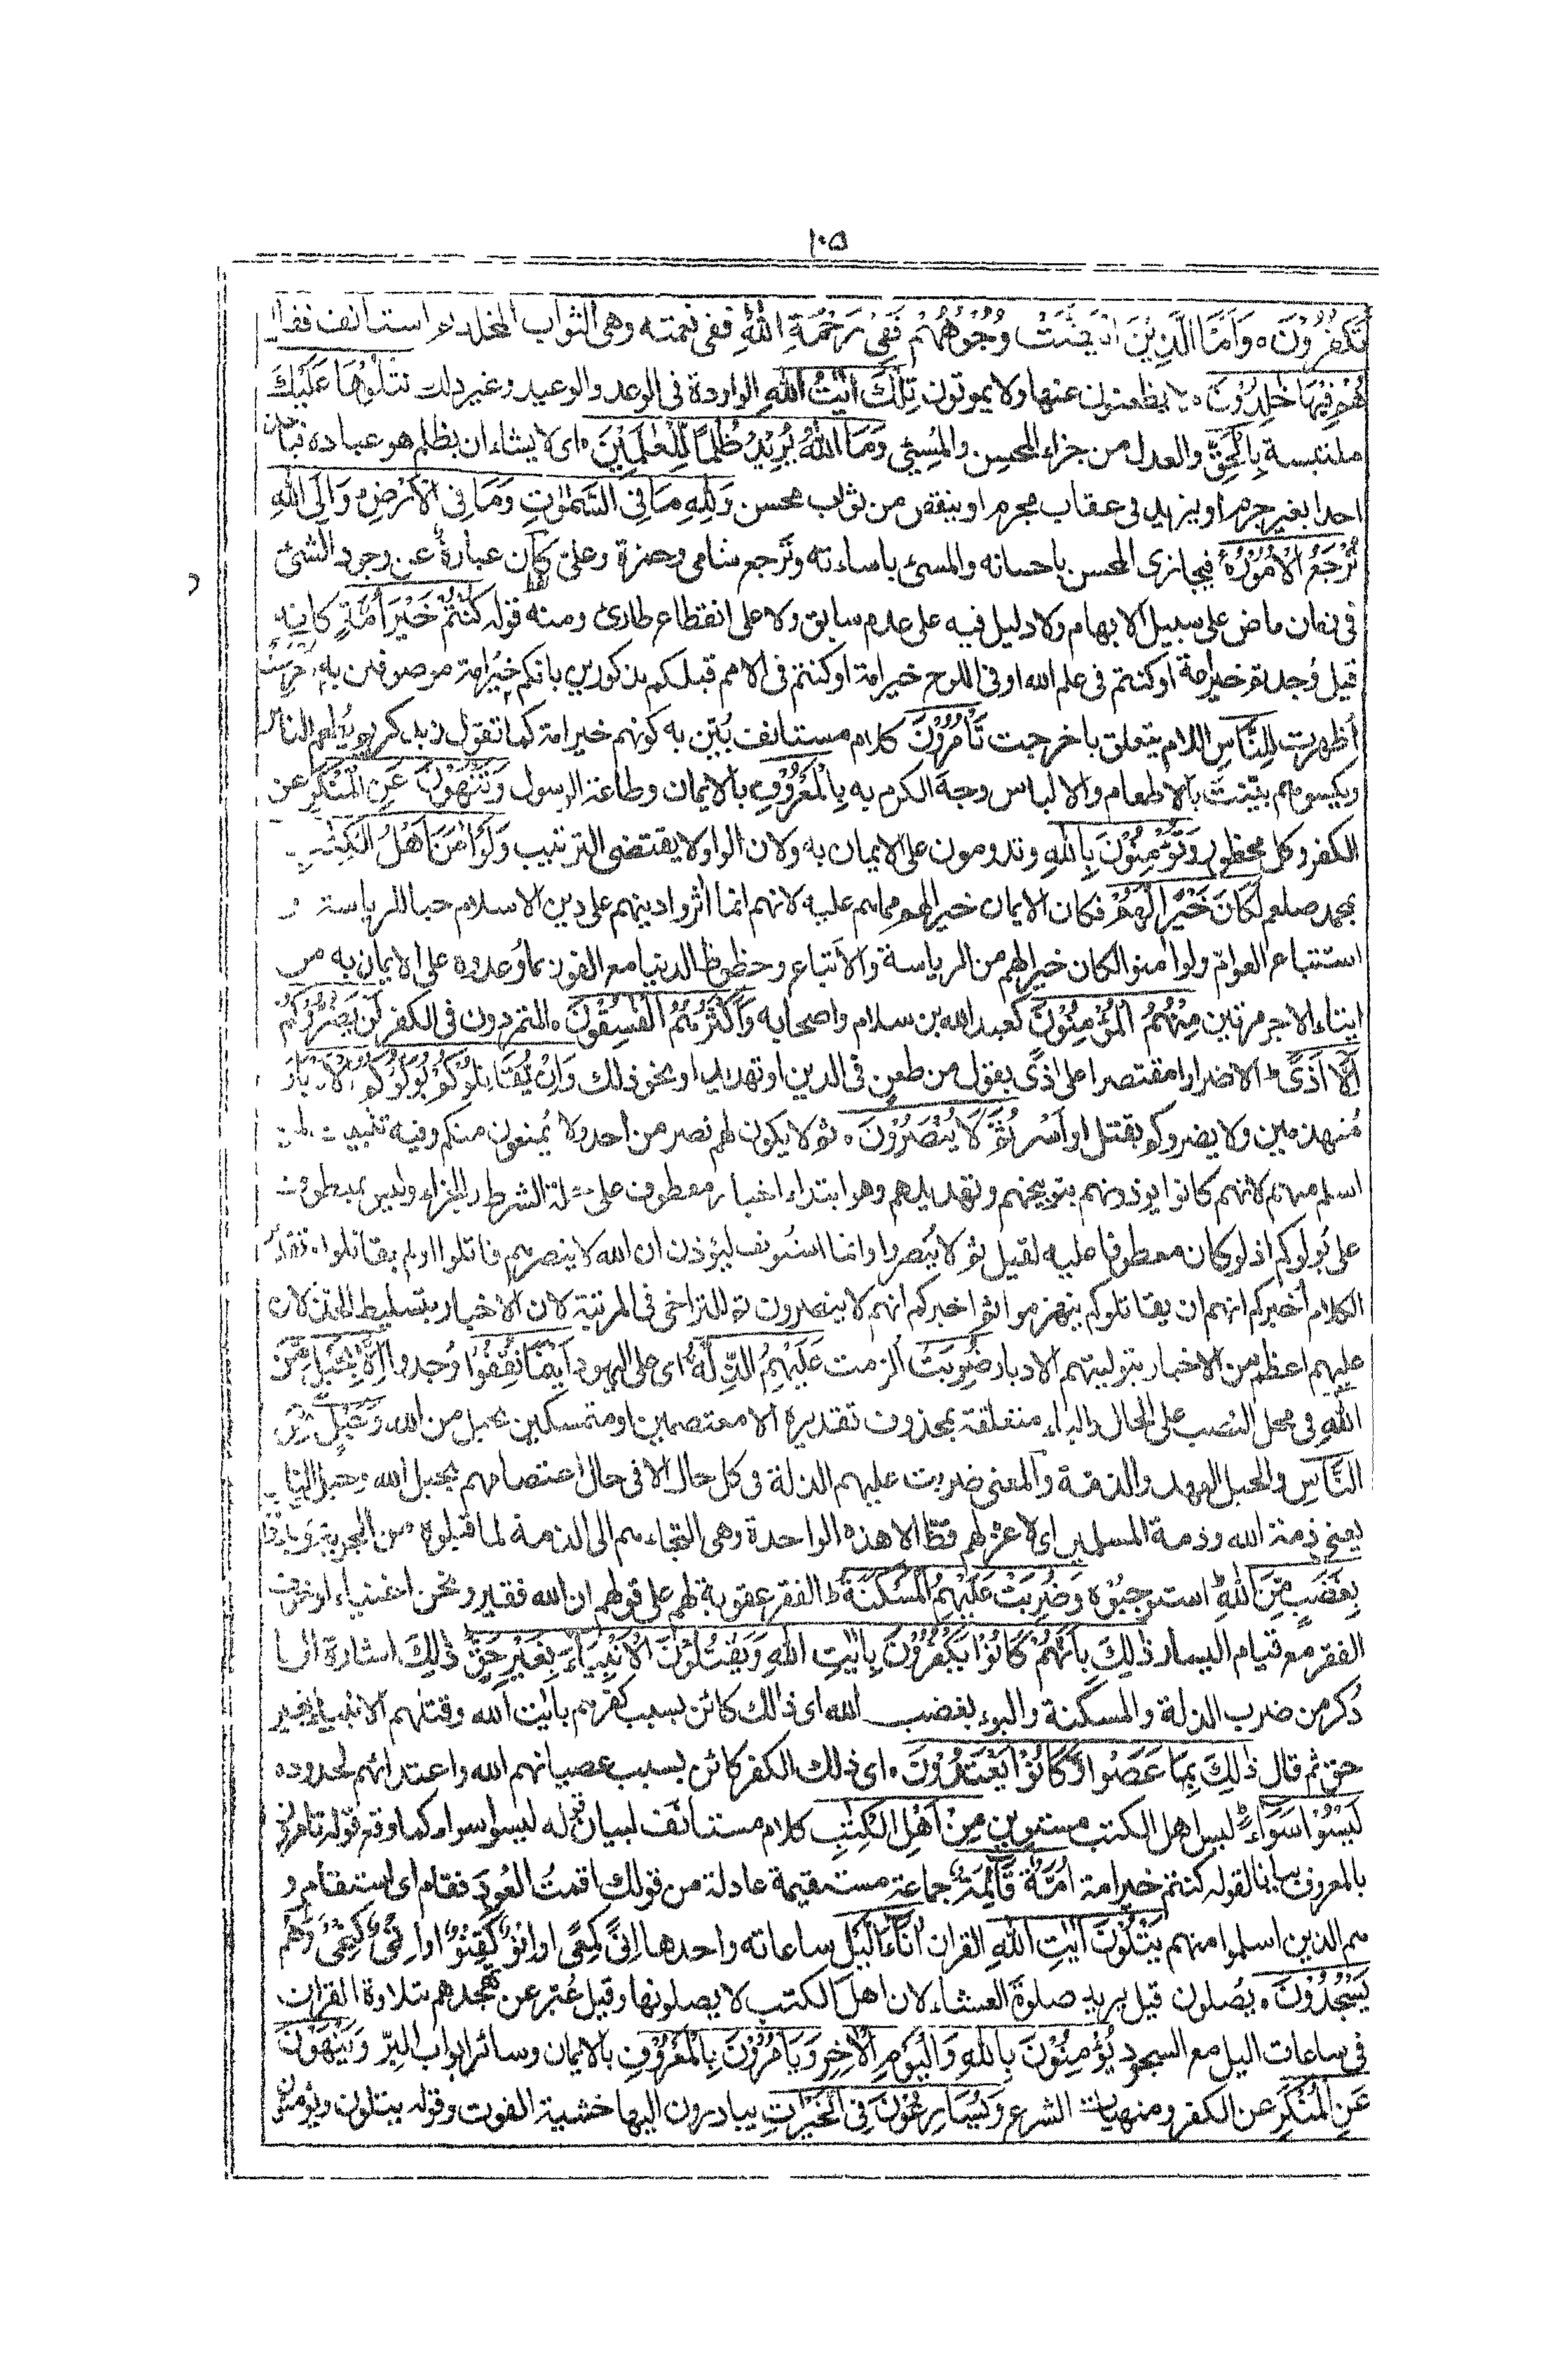 ١٠٥
تَكْفُرُوْنَ ٥ وَاَمَّا الَّذِيْنَ ابْيَضَّتْ وُجُوْهُهُمْ فَفِىْ رَحْمَةِ اللّٰهِ ففى نعمته وهى الثواب المخلد ثم استانف فقال
هُمْ فِيْهَا خٰلِدُوْنَ ٥ لا يظعنون عنها ولا يموتون تِلْكَ اٰيٰتُ اللّٰهِ الواردة فى الوعد والوعيد وغير ذلك نَتْلُوْهَا عَلَيْكَ
ملتبسة بِالْحَقِّ والعدل من جزاء المحسن والمُسِيْئِ وَمَا اللّٰهُ يُرِيْدُ ظُلْمًا لِّلْعٰلَمِيْنَ ٥ اى لا يشاء ان يظلم هو عباده فياخذ
احدا بغير جرم او يزيد فى عقاب مجرم او ينقص من ثواب محسن وَلِلّٰهِ مَا فِى السَّمٰوٰتِ وَمَا فِى الْاَرْضِ وَاِلَى اللّٰهِ
تُرْجَعُ الْاُمُوْرُ فيجازى المحسن باحسانه والمسئ باساءته وتَرجع شامى وحمزة وعلىّ كان عبارة عن وجود الشئ
فى زمان ماض على سبيل الابهام ولا دليل فيه على عدم سابق ولا على انقطاع طارئ ومنه قوله كُنْتُمْ خَيْرَ اُمَّةٍ كانه
قيل وُجدتم خير امة او كنتم فى علم الله او فى اللوح خير امة او كنتم فى الامم قبلكم مذكورين بانكم خيرُ امة موصوفين به اُخْرِجَتْ
اُظهرت لِلنَّاسِ اللام يتعلق باخرجت تَاْمُرُوْنَ كلام مستانف بُيّن به كونهم خير امة كما تقول زيد كريم يُطعم الناس
ويكسوهم بيّنتَ بالاطعام والالباس وجهَ الكرم به بِالْمَعْرُوْفِ بالايمان وطاعة الرسول وَتَنْهَوْنَ عَنِ الْمُنْكَرِ عن
الكفر وكل محظور وَتُؤْمِنُوْنَ بِاللّٰهِ وتدومون على الايمان به ولان الواو لا يقتضى الترتيب وَلَوْ اٰمَنَ اَهْلُ الْكِتٰبِ
بمحمد صلعم لَكَانَ خَيْرًا لَّهُمْ فكان الايمان خيرا لهم مما هم عليه لانهم انما اٰثروا دينهم على دين الاسلام حبا للرياسة و
استتباع العوامّ ولو اٰمنوا لكان خيرا لهم من الرياسة والاَتباع وحظوظ الدنيا مع الفوز بما وُعدوه على الايمان به من
ايتاء الاجر مرتين مِنْهُمُ الْمُؤْمِنُوْنَ كعبد الله بن سلام واصحابه وَاَكْثَرُهُمُ الْفٰسِقُوْنَ ٥ المتمردون فى الكفر لَنْ يَّضُرُّوْكُمْ
اِلَّا اَذًى ط الا ضرارا مقتصرا على اذًى بقول من طعن فى الدين او تهديد او نحو ذلك وَاِنْ يُّقَاتِلُوْكُمْ يُوَلُّوْكُمُ الْاَدْبَارَ
مُنهزمين ولا يضروكم بقتل او اَسْر ثُمَّ لَا يُنْصَرُوْنَ ٥ ثم لا يكون لهم نصر من احد ولا يُمنعون منكم وفيه تثبيت لمن
اسلم منهم لانهم كانوا يوذونهم بتوبيخهم وتهديدهم وهو ابتداء اخبار معطوف على جملة الشرط والجزاء وليس بمعطوف
على يُولوكم اذ لو كان معطوفا عليه لقيل ثم لا يُنصروا وانما استُونف ليؤذن ان الله لا ينصرهم قاتلوا او لم يقاتلوا وتقدير
الكلام اُخبركم انهم ان يقاتلوكم ينهزموا ثم اخبركم انهم لا ينصرون ثم للتراخى فى المرتبة لان الاخبار بتسليط الخذلان
عليهم اعظم من الاخبار بتوليتهم الادبار ضُرِبَتْ اُلزمت عَلَيْهِمُ الذِّلَّةُ اى على اليهود اَيْنَمَا ثُقِفُوْا وُجدوا اِلَّا بِحَبْلٍ مِّنَ
اللّٰهِ فى محل النصب على الحال والباء متعلقة بمحذوف تقديره الا معتصمين او متمسكين بحبل من الله وَحَبْلٍ مِّنَ
النَّاسِ والحبل العهد والذمة والمعنى ضربت عليهم الذلة فى كل حال الا فى حال اعتصامهم بحبل الله وحبل الناس
يعنى ذمة الله وذمة المسلمين اى لا عز لهم قطّ الا هذه الواحدة وهى التجاءهم الى الذمة لما قبلوه من الجزية وَبَآءُوْا
بِغَضَبٍ مِّنَ اللّٰهِ استوجبُوْه وَضُرِبَتْ عَلَيْهِمُ الْمَسْكَنَةُ ط الفقر عقوبة لهم على قولهم ان الله فقير ونحن اغنياء او خوف
الفقر مع قيام اليسار ذٰلِكَ بِاَنَّهُمْ كَانُوْا يَكْفُرُوْنَ بِاٰيٰتِ اللّٰهِ وَيَقْتُلُوْنَ الْاَنْبِيَآءَ بِغَيْرِ حَقٍّ ط ذٰلِكَ اشارة الى ما
ذُكر من ضرب الذلة والمسكنة والبوء بغضب الله اى ذٰلك كائن بسبب كفرهم باٰيٰت الله وقتلهم الانبياء بغير
حق ثم قال ذٰلِكَ بِمَا عَصَوْا وَّكَانُوْا يَعْتَدُوْنَ ٥ اى ذلك الكفر كائن بسبب عصيانهم الله واعتدائهم لحدوده
لَيْسُوْا سَوَآءً ط ليس اهل الكتب مستوين مِنْ اَهْلِ الْكِتٰبِ كلام مستانَف لبيان قوله ليسوا سواء كما وقع قوله تامرون
بالمعروف بيانا لقوله كنتم خير امة اُمَّةٌ قَآئِمَةٌ جماعة مستقيمة عادلة من قولك اقمتُ العُودَ فقام اى استقام و
هم الذين اسلموا منهم يَتْلُوْنَ اٰيٰتِ اللّٰهِ القراٰن اٰنَآءَ الَّيْلِ ساعاته واحدها اِنًى كَمِعًى او اِنْوٌ كَقِنْوٌ او اِنْىٌ كَنِحْىٌ وَهُمْ
يَسْجُدُوْنَ ٥ يُصلون قيل يريد صلوة العشاء لان اهل الكتب لا يصلونها وقيل عُبّر عن تهجدهم بتلاوة القراٰن
فى ساعات اليل مع السجود يُؤْمِنُوْنَ بِاللّٰهِ وَالْيَوْمِ الْاٰخِرِ وَيَاْمُرُوْنَ بِالْمَعْرُوْفِ بالايمان وسائر ابواب البِرّ وَيَنْهَوْنَ
عَنِ الْمُنْكَرِ عن الكفر ومنهيات الشرع وَيُسَارِعُوْنَ فِى الْخَيْرٰتِ يبادرون اليها خشية الفوت وقوله يتلون ويؤمنون